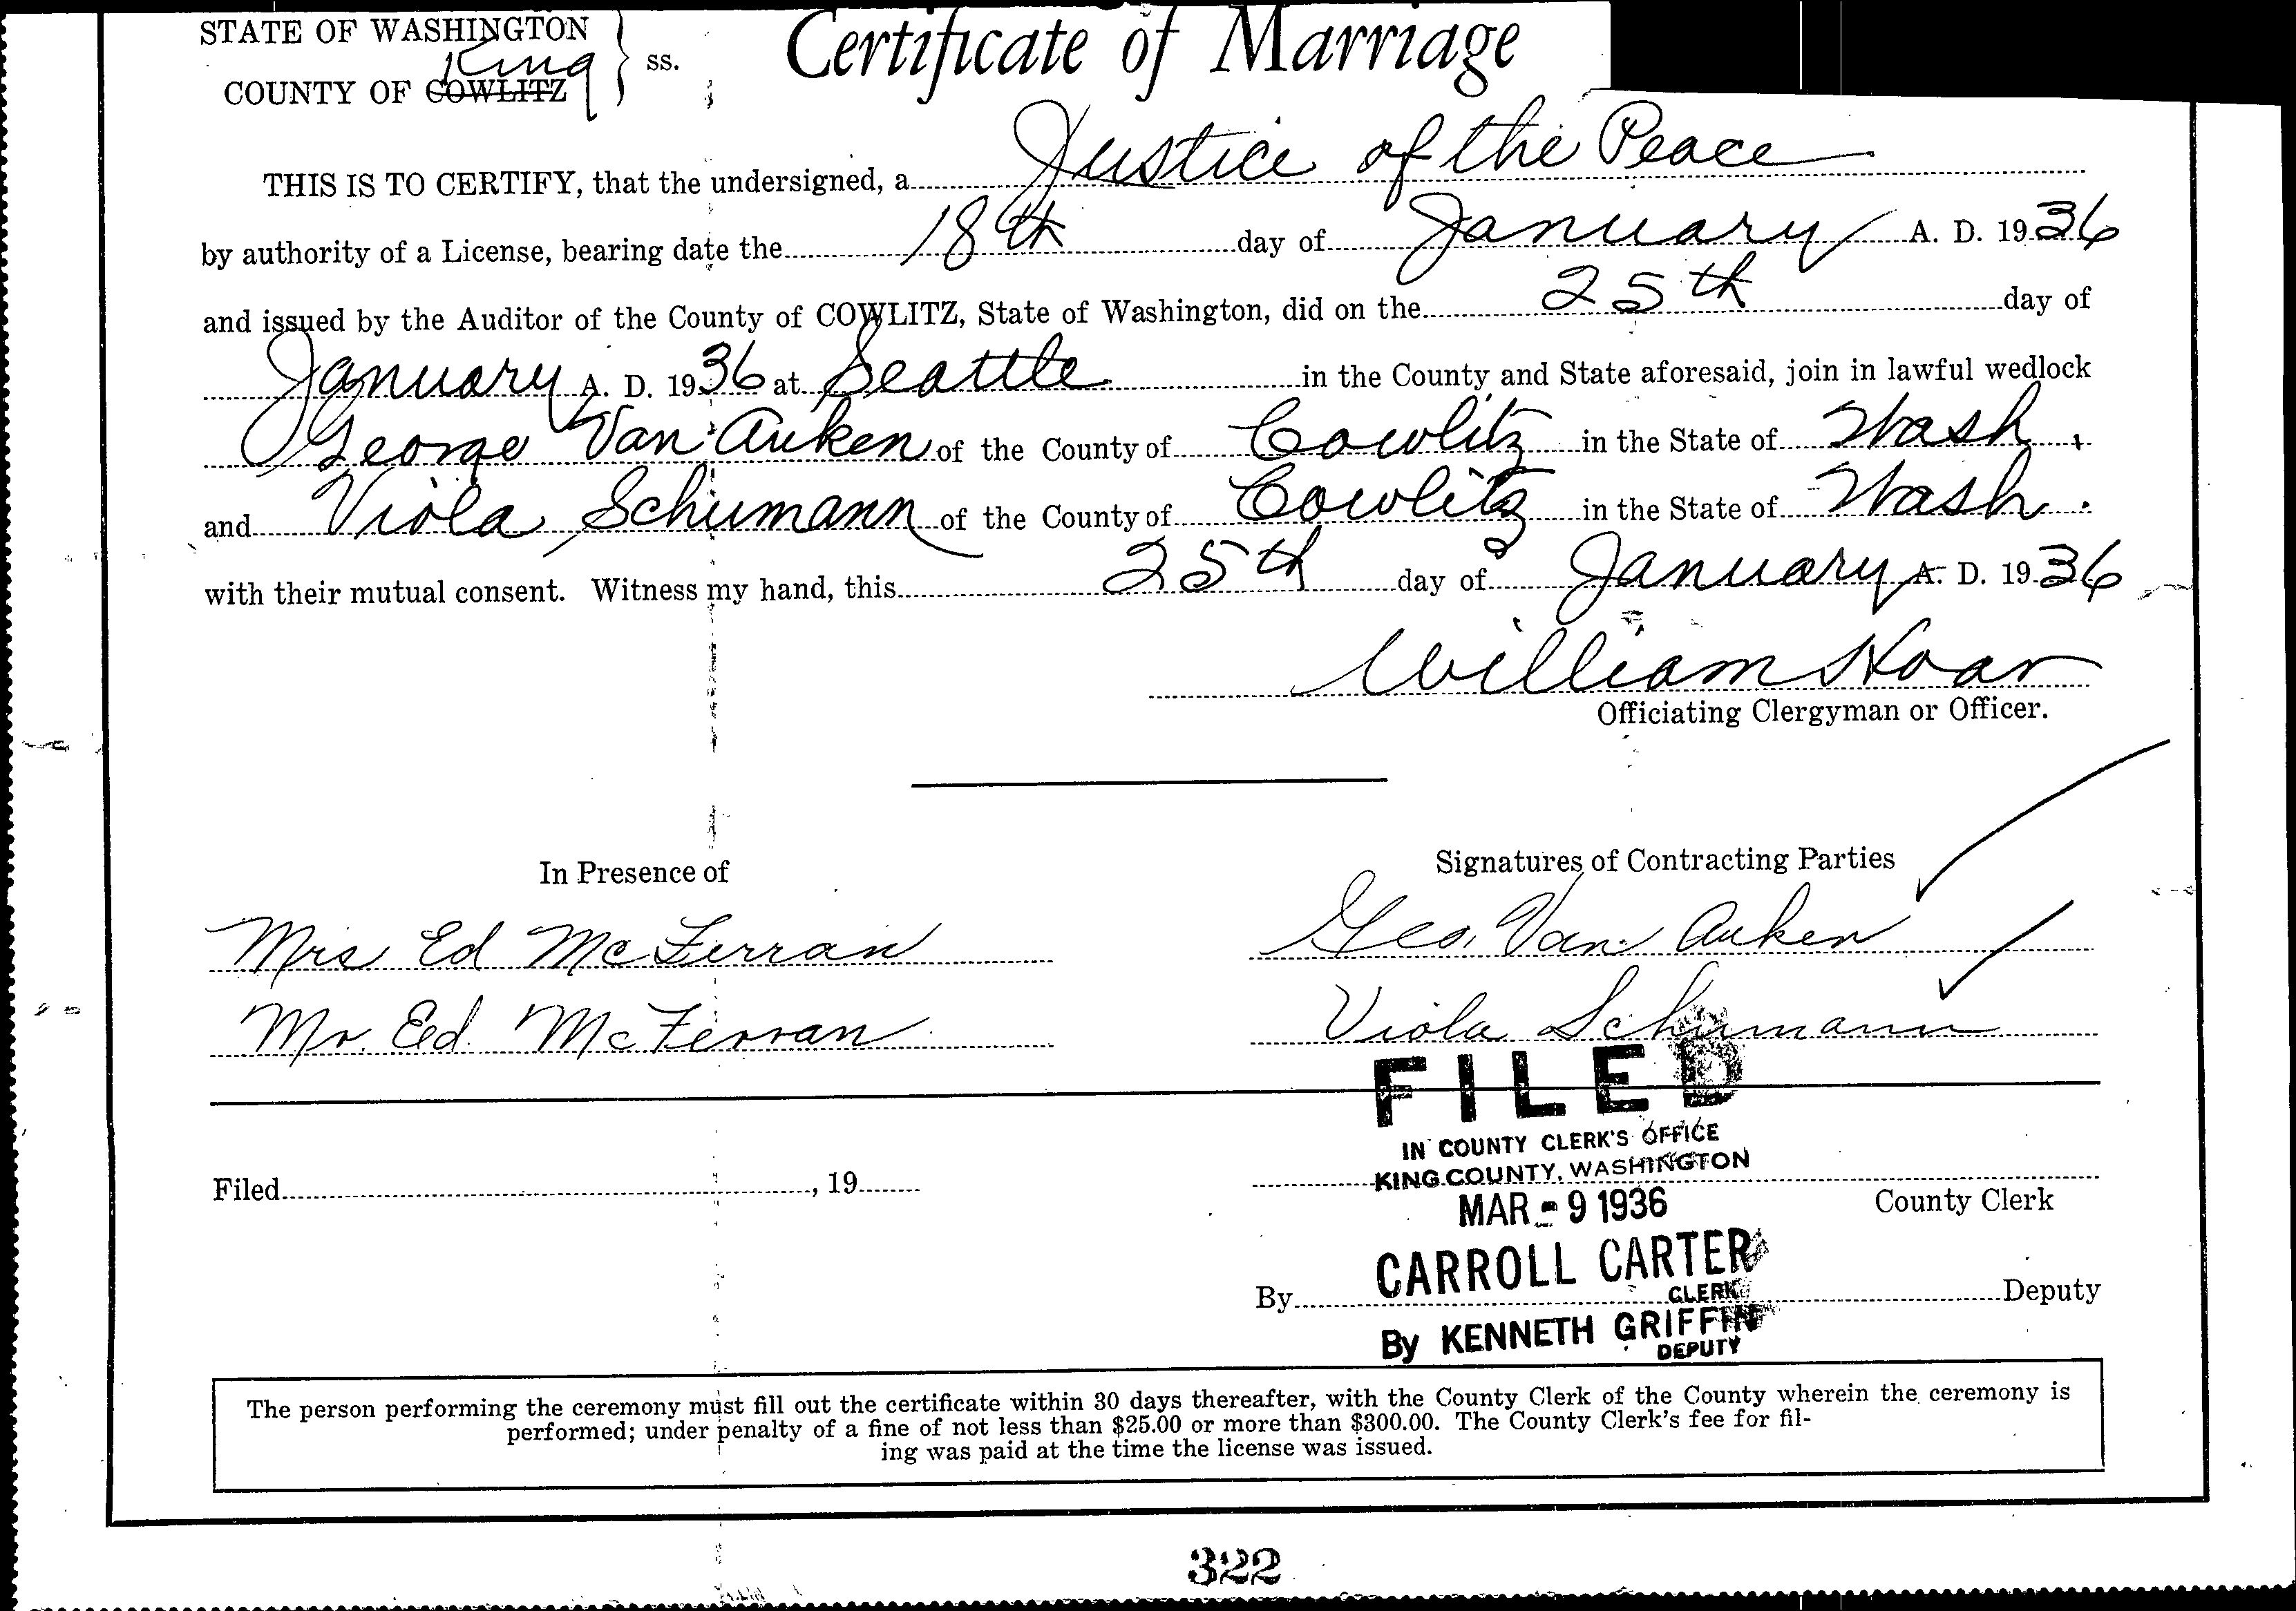 STATE OF WASHINGTON
King
COUNTY OF COWLITZ
ss.
Certificate of Marriage
THIS IS TO CERTIFY, that the undersigned, a Justice of the Peace
by authority of a License, bearing date the 18th day of January A. D. 1936
and issued by the Auditor of the County of COWLITZ, State of Washington, did on the 25th day of
January A. D. 1936 at Seattle in the County and State aforesaid, join in lawful wedlock
George Van Auken of the County of Cowlitz in the State of Wash.
and Viola Schumann of the County of Cowlitz in the State of Wash.
with their mutual consent. Witness my hand, this 25th day of January A. D. 1936
William Hoar
Officiating Clergyman or Officer.
In Presence of
Signatures of Contracting Parties
Mrs Ed McFerran
Geo. Van Auken
Mr. Ed. McFerran
Viola Schumann
FILED
IN COUNTY CLERK'S OFFICE
KING COUNTY, WASHINGTON
Filed , 19
MAR - 9 1936
County Clerk
CARROLL CARTER
CLERK
By Deputy
By KENNETH GRIFFIN
DEPUTY
The person performing the ceremony must fill out the certificate within 30 days thereafter, with the County Clerk of the County wherein the ceremony is
performed; under penalty of a fine of not less than $25.00 or more than $300.00. The County Clerk's fee for fil-
ing was paid at the time the license was issued.
322